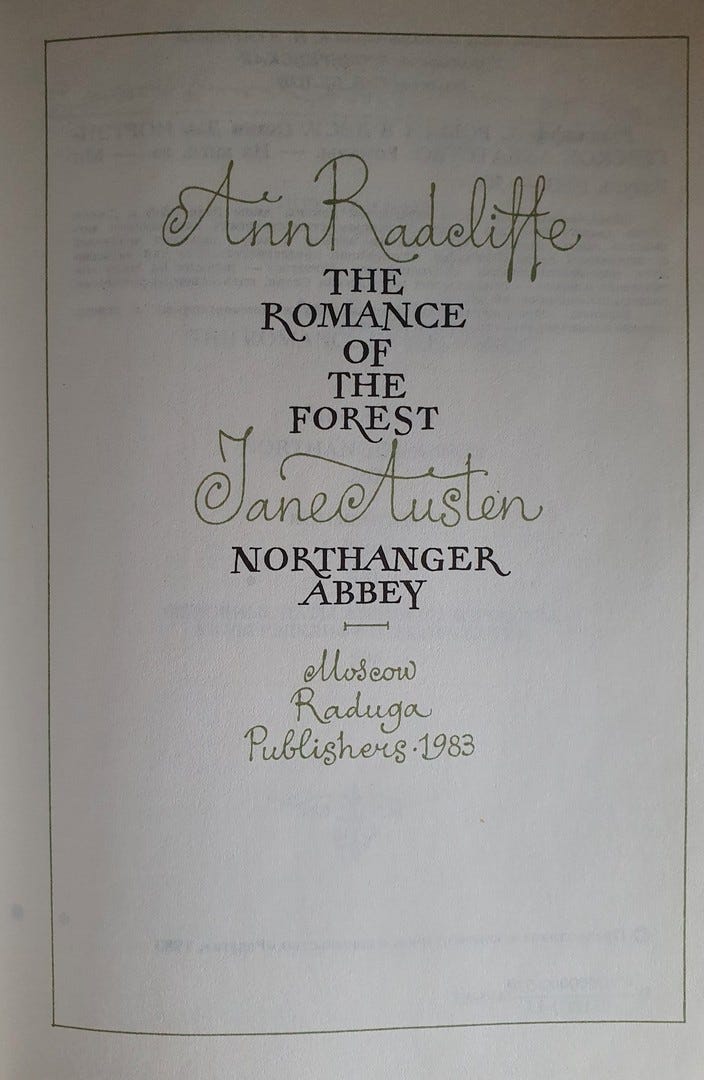 Ann Radcliffe
THE
ROMANCE
OF
THE
FOREST
Jane Austen
NORTHANGER
ABBEY
Moscow
Raduga
Publishers·1983